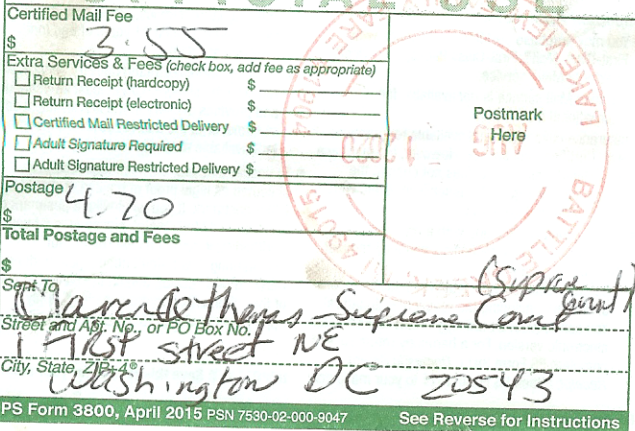 OFFICIAL USE
Certified Mail Fee
$ 3.55
Extra Services & Fees (check box, add fee as appropriate)
Return Receipt (hardcopy) $
Return Receipt (electronic) $
Certified Mail Restricted Delivery $
Adult Signature Required $
Adult Signature Restricted Delivery $
Postmark
Here
LAKEVIEW
BATTLE
49015
AUG 1 2020
Postage
$ 4.70
Total Postage and Fees
$
Sent To
Clarence Thomas Supreme Court (Supreme Court)
Street and Apt. No., or PO Box No.
1 First street NE
City, State, ZIP+4®
Washington DC 20543
PS Form 3800, April 2015 PSN 7530-02-000-9047 See Reverse for Instructions